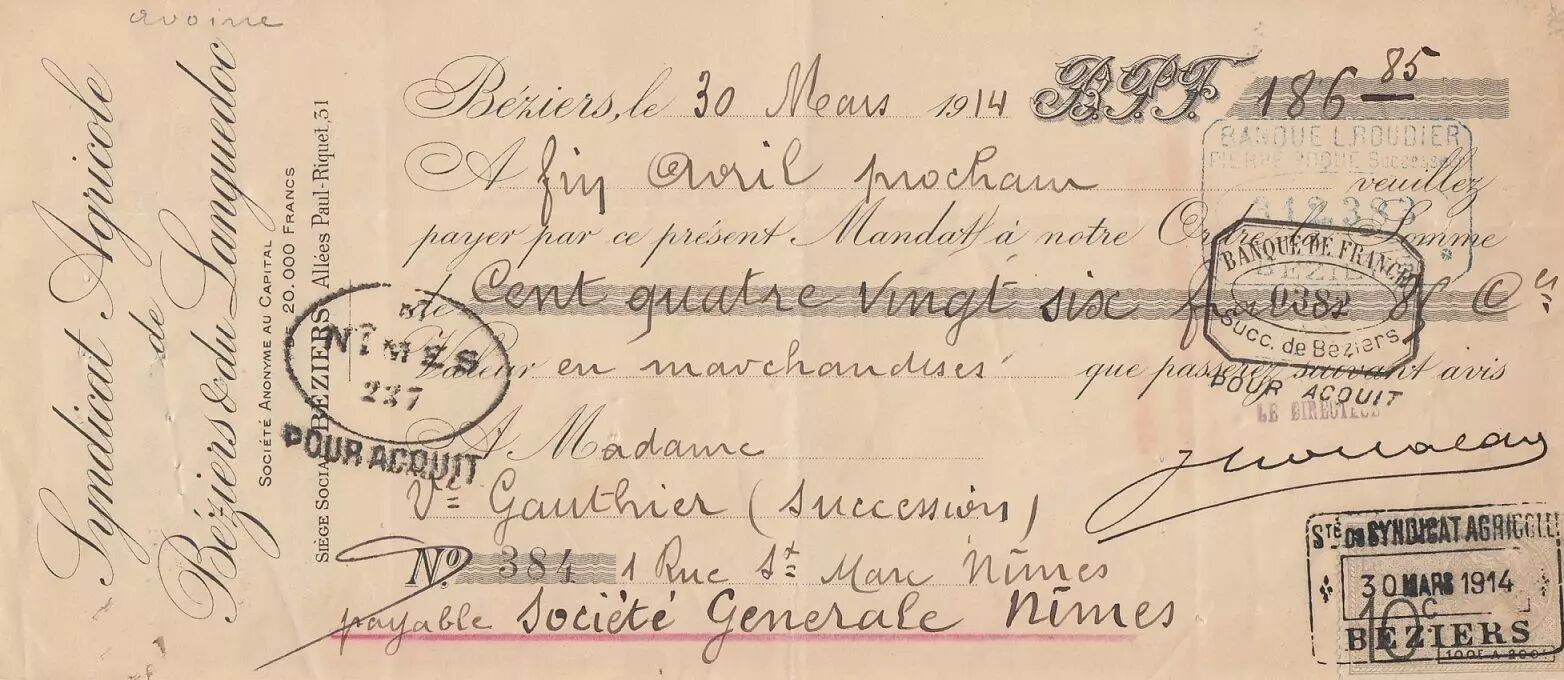 avoine
Syndicat Agricole
de
Béziers & du Languedoc
SOCIÉTÉ ANONYME AU CAPITAL DE 20.000 FRANCS
SIÈGE SOCIAL BÉZIERS Allées Paul-Riquet, 31
Béziers, le 30 Mars 1914 B.P.F. 186 85
A fin Avril prochain veuillez
payer par ce présent Mandat à notre Ordre la Somme
de Cent quatre vingt six francs 85 Ces
Valeur en marchandises que passerez suivant avis
A Madame
Ve Gauthier (Succession)
No 384 1 Rue St Marc Nîmes
payable Société Generale Nîmes
BANQUE L. ROUDIER
PIERRE ROQUE Successeur
312.383
BÉZIERS
BANQUE DE FRANCE
0382
Succ. de Béziers
POUR ACQUIT
LE DIRECTEUR
NÎMES
237
POUR ACQUIT
STÉ DU SYNDICAT AGRICOLE
30 MARS 1914
10c
BEZIERS